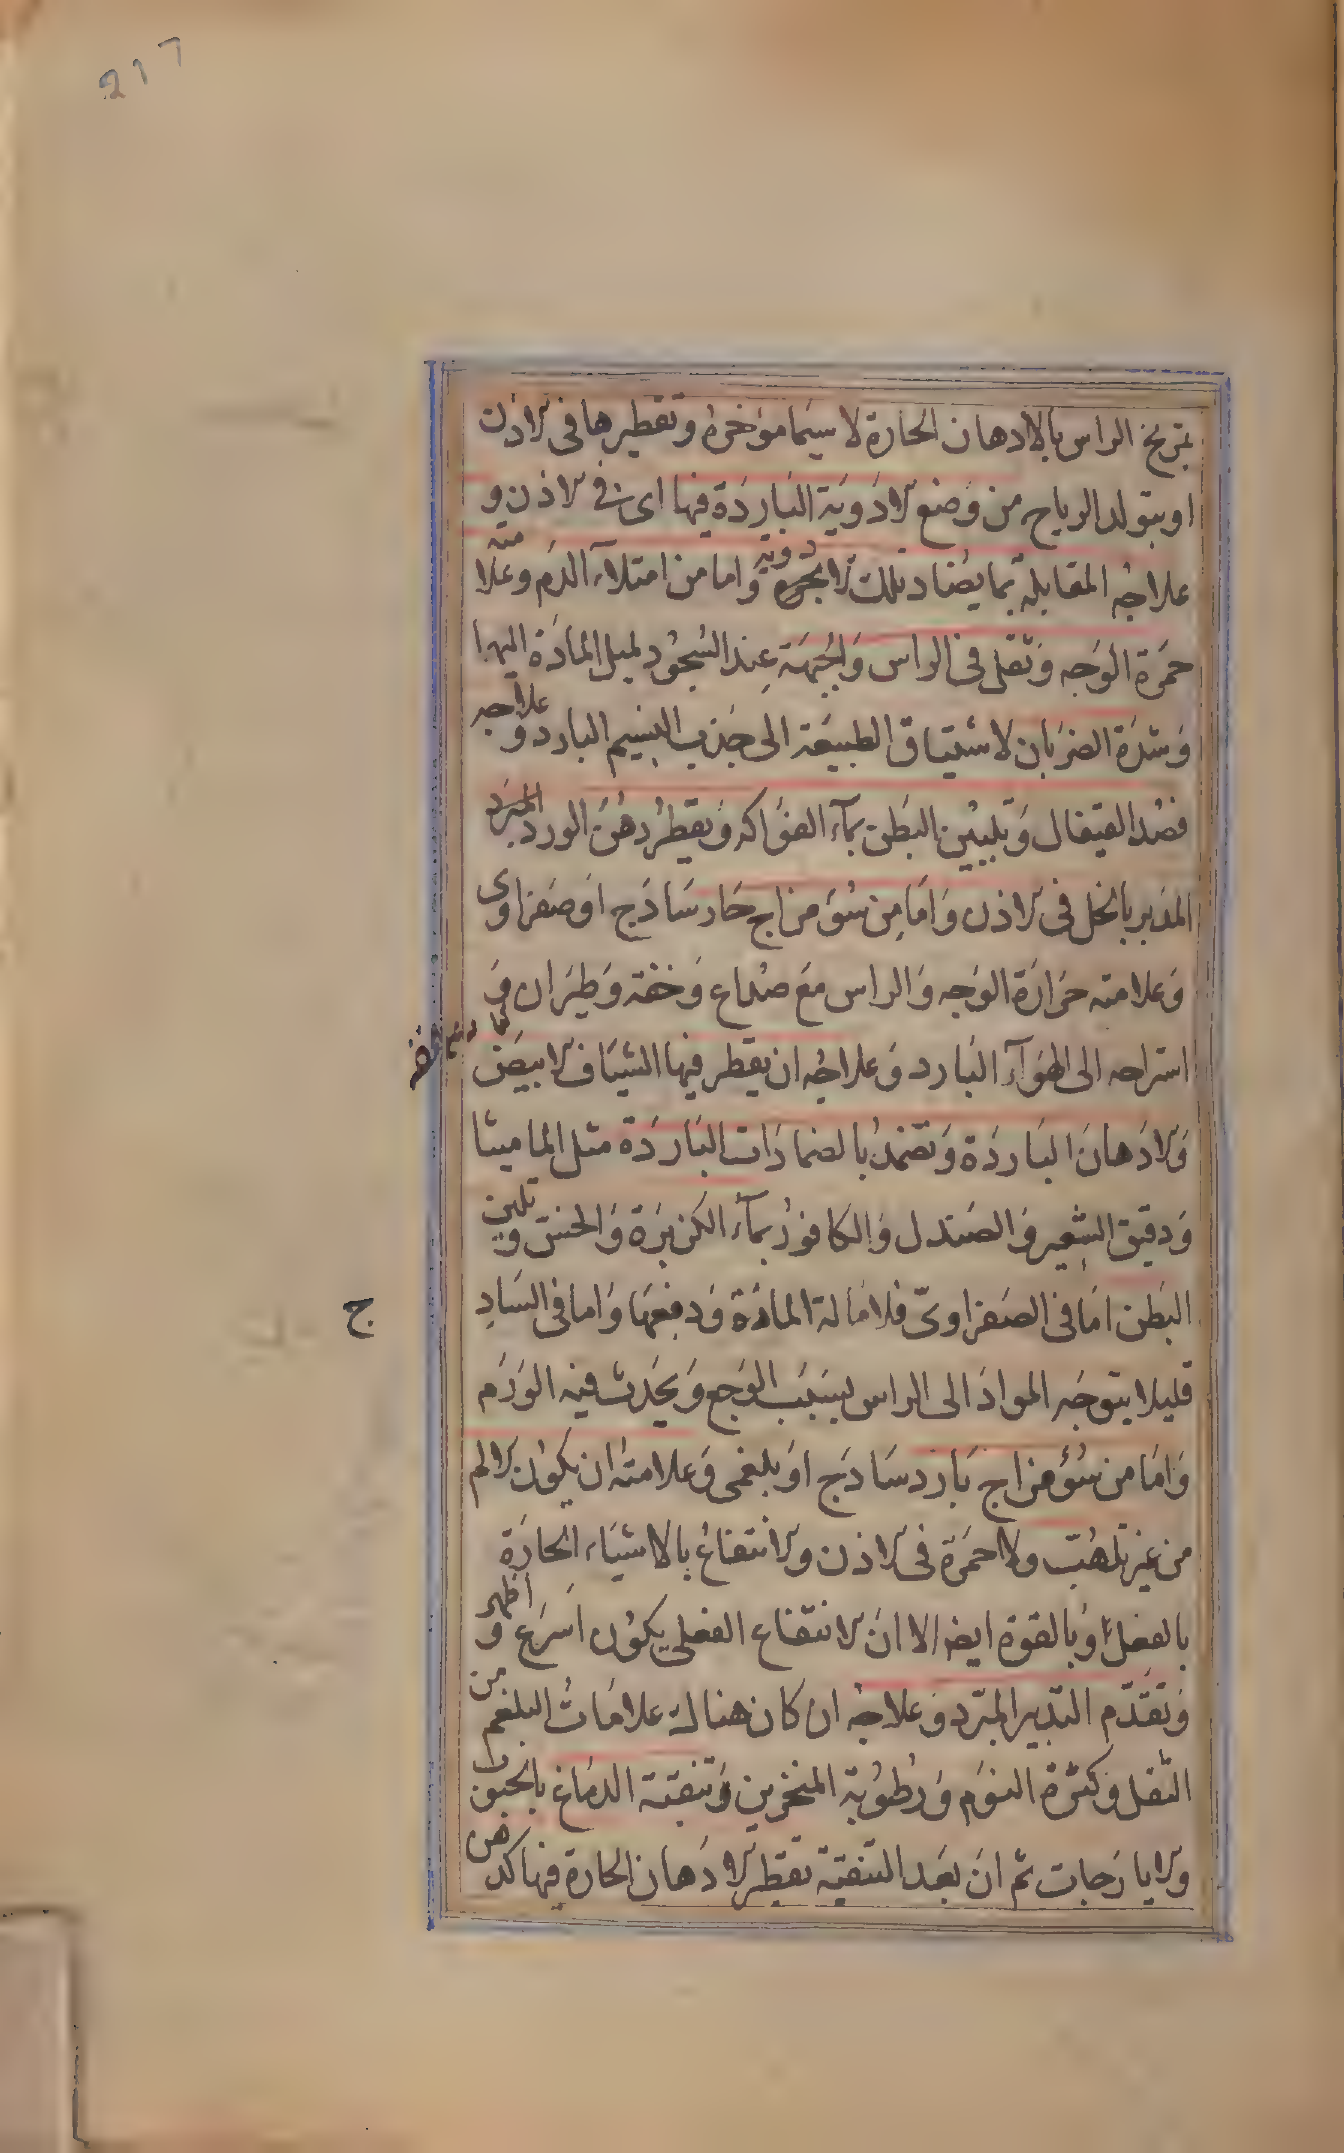 217
بتمريخ الراس بالادهان الحارة لا سيما مؤخره وتقطيرها فى الاذن
او بتولد الرياح من وضع الادوية الباردة فيها اى فى الاذن و
علاجه المقابلة بما يضاد تلك الادوية واما من امتلاء الدم وعلامته
حمرة الوجه وثقل فى الراس والجبهة عند السجود لميل المادة اليها
وشدة الضربان لاشتياق الطبيعة الى جذب النسيم البارد وعلاجه
فصد القيفال وتليين البطن بماء الفواكه وتقطير دهن الورد المبرد
المدبر بالخل فى الاذن واما من سوء مزاج حار ساذج او صفراوى
وعلامته حرارة الوجه والراس مع صداع وخفة وطيران فى
استراحه الى الهواء البارد وعلاجه ان يقطر فيها الشياف الابيض
والادهان الباردة وتضمد بالضمادات الباردة مثل الماميثا
ودقيق الشعير والصندل والكافور بماء الكزبرة والخس وتلين
البطن اما فى الصفراوى فلامالة المادة ودفعها واما فى الساذ
ج
قليلا يتوجه المواد الى الراس بسبب الوجع ويحدث فيه الورم
واما من سوء مزاج بارد ساذج او بلغمى وعلامته ان يكون الالم
من غير تلهب ولا حمرة فى الاذن والانتفاع بالاشياء الحارة
بالفعل او بالقوة ايضا الا ان الانتفاع الفعلى يكون اسرع و اظهر
وتقدم التدبير المبرد وعلاجه ان كان هناك علامات البلغم من
الثقل وكثرة النوم ورطوبة المنخرين وتنقية الدماغ بالحبوب
والايارجات ثم ان بعد التنقية تقطر الادهان الحارة فيها كدهن